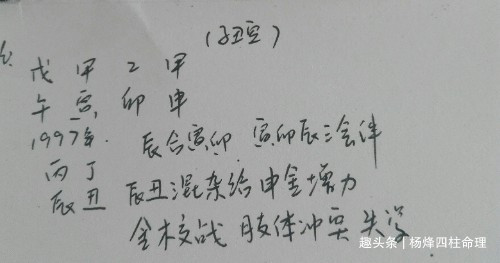 (子丑空)
戊 甲 乙 甲
午 寅 卯 申
1997年. 辰合寅卯 寅卯辰三会伴
丙 丁
辰 丑 辰丑混杂给申金增力
金木交战 肢体冲突 失学
趣头条 | 杨烽四柱命理